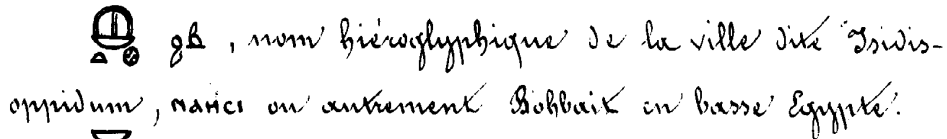 ϩⲃ, nom hiéroglyphique de la ville dite Isidis-
oppidum, ⲛⲁⲏⲥⲓ ou autrement Bohbait en basse Egypte.